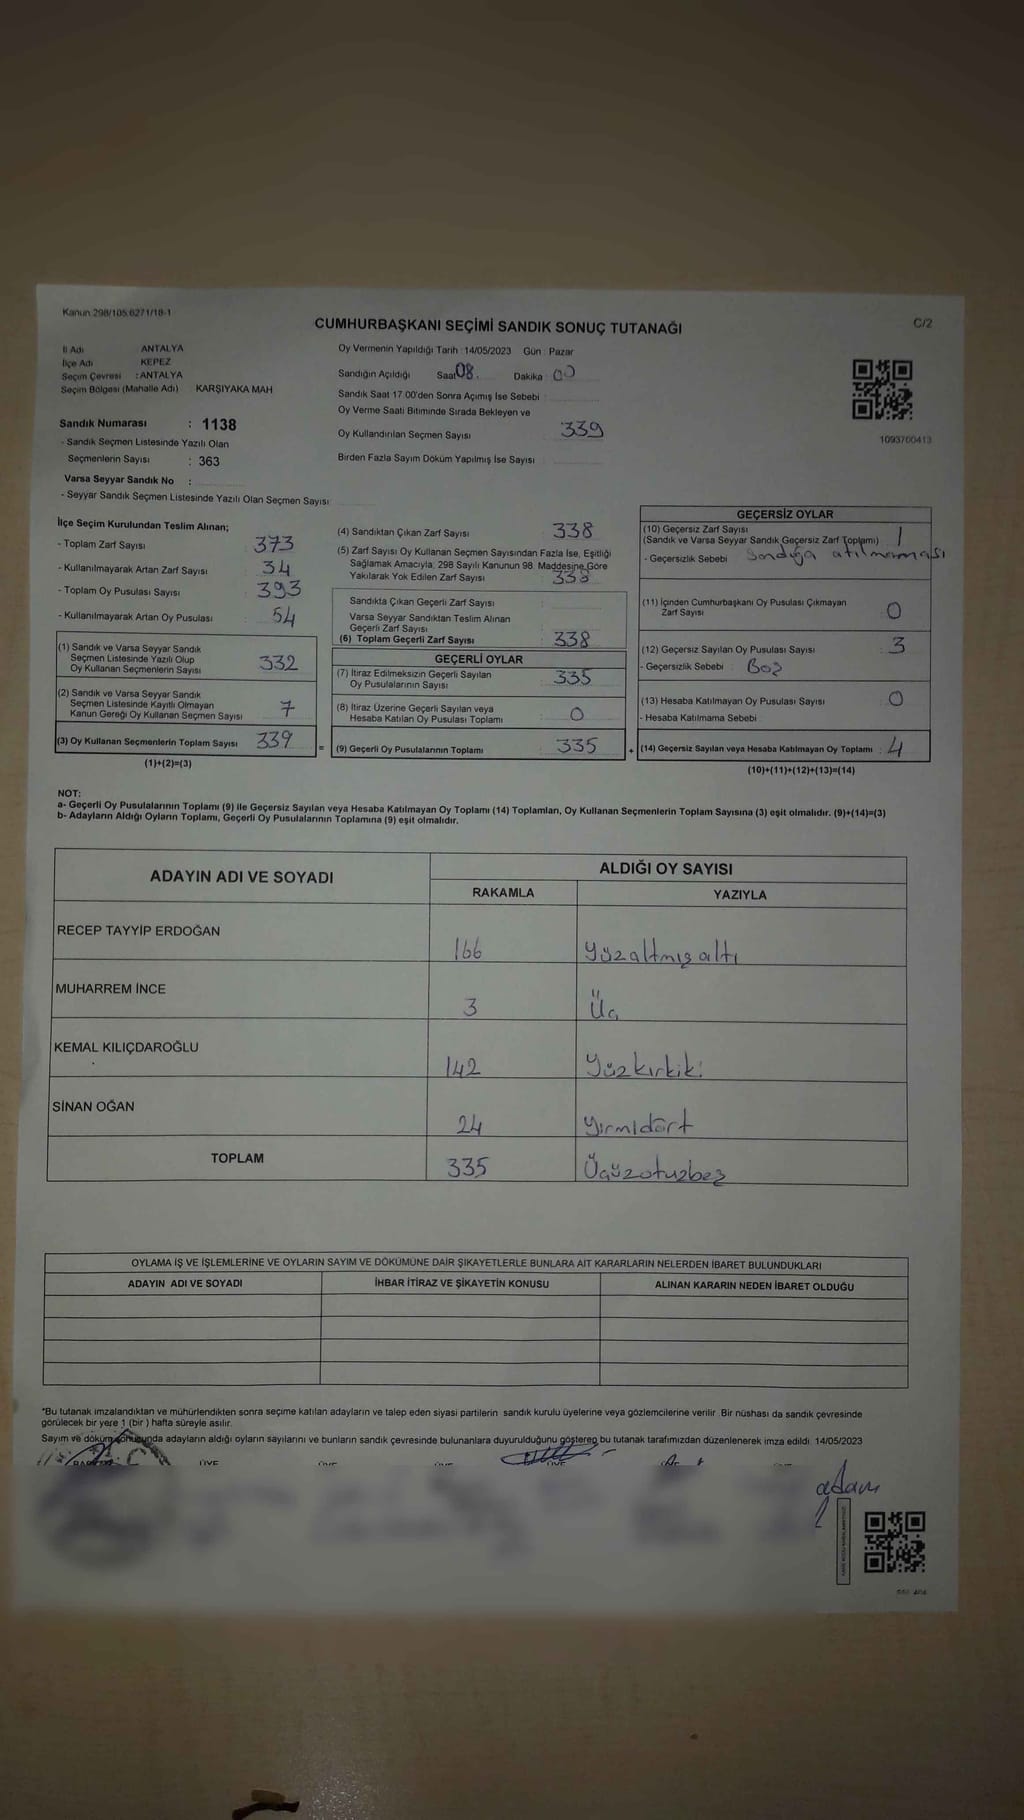 Kanun 298/105,6271/18-1
CUMHURBAŞKANI SEÇİMİ SANDIK SONUÇ TUTANAĞI
C/2
İl Adı ANTALYA
İlçe Adı KEPEZ
Seçim Çevresi :ANTALYA
Seçim Bölgesi (Mahalle Adı) KARŞIYAKA MAH
Sandık Numarası : 1138
- Sandık Seçmen Listesinde Yazılı Olan
Seçmenlerin Sayısı : 363
Varsa Seyyar Sandık No :
- Seyyar Sandık Seçmen Listesinde Yazılı Olan Seçmen Sayısı
Oy Vermenin Yapıldığı Tarih :14/05/2023 Gün : Pazar
Sandığın Açıldığı Saat 08. Dakika 00
Sandık Saat 17:00'den Sonra Açımış İse Sebebi :
Oy Verme Saati Bitiminde Sırada Bekleyen ve
Oy Kullandırılan Seçmen Sayısı 339
Birden Fazla Sayım Döküm Yapılmış İse Sayısı
1093700413
İlçe Seçim Kurulundan Teslim Alınan;
- Toplam Zarf Sayısı : 373
- Kullanılmayarak Artan Zarf Sayısı : 34
- Toplam Oy Pusulası Sayısı : 393
- Kullanılmayarak Artan Oy Pusulası : 54
(1) Sandık ve Varsa Seyyar Sandık
Seçmen Listesinde Yazılı Olup
Oy Kullanan Seçmenlerin Sayısı 332
(2) Sandık ve Varsa Seyyar Sandık
Seçmen Listesinde Kayıtlı Olmayan
Kanun Gereği Oy Kullanan Seçmen Sayısı 7
(3) Oy Kullanan Seçmenlerin Toplam Sayısı 339
(1)+(2)=(3)
(4) Sandıktan Çıkan Zarf Sayısı 338
(5) Zarf Sayısı Oy Kullanan Seçmen Sayısından Fazla İse, Eşitliği
Sağlamak Amacıyla, 298 Sayılı Kanunun 98. Maddesine Göre
Yakılarak Yok Edilen Zarf Sayısı 338
Sandıkta Çıkan Geçerli Zarf Sayısı
Varsa Seyyar Sandıktan Teslim Alınan
Geçerli Zarf Sayısı
(6) Toplam Geçerli Zarf Sayısı : 338
GEÇERLİ OYLAR
(7) İtiraz Edilmeksizin Geçerli Sayılan
Oy Pusulalarının Sayısı : 335
(8) İtiraz Üzerine Geçerli Sayılan veya
Hesaba Katılan Oy Pusulası Toplamı : 0
= (9) Geçerli Oy Pusulalarının Toplamı : 335
GEÇERSİZ OYLAR
(10) Geçersiz Zarf Sayısı
(Sandık ve Varsa Seyyar Sandık Geçersiz Zarf Toplamı) 1
- Geçersizlik Sebebi Sandığa atılmaması
(11) İçinden Cumhurbaşkanı Oy Pusulası Çıkmayan
Zarf Sayısı 0
(12) Geçersiz Sayılan Oy Pusulası Sayısı : 3
- Geçersizlik Sebebi : Boş
(13) Hesaba Katılmayan Oy Pusulası Sayısı : 0
- Hesaba Katılmama Sebebi
+ (14) Geçersiz Sayılan veya Hesaba Katılmayan Oy Toplamı : 4
(10)+(11)+(12)+(13)=(14)
NOT:
a- Geçerli Oy Pusulalarının Toplamı (9) ile Geçersiz Sayılan veya Hesaba Katılmayan Oy Toplamı (14) Toplamları, Oy Kullanan Seçmenlerin Toplam Sayısına (3) eşit olmalıdır. (9)+(14)=(3)
b- Adayların Aldığı Oyların Toplamı, Geçerli Oy Pusulalarının Toplamına (9) eşit olmalıdır.
ADAYIN ADI VE SOYADI
ALDIĞI OY SAYISI
RAKAMLA YAZIYLA
RECEP TAYYİP ERDOĞAN 166 Yüzaltmışaltı
MUHARREM İNCE 3 Üç
KEMAL KILIÇDAROĞLU 142 Yüzkırkiki
SİNAN OĞAN 24 Yirmidört
TOPLAM 335 Üçyüzotuzbeş
OYLAMA İŞ VE İŞLEMLERİNE VE OYLARIN SAYIM VE DÖKÜMÜNE DAİR ŞİKAYETLERLE BUNLARA AİT KARARLARIN NELERDEN İBARET BULUNDUKLARI
ADAYIN ADI VE SOYADI İHBAR İTİRAZ VE ŞİKAYETİN KONUSU ALINAN KARARIN NEDEN İBARET OLDUĞU
*Bu tutanak imzalandıktan ve mühürlendikten sonra seçime katılan adayların ve talep eden siyasi partilerin sandık kurulu üyelerine veya gözlemcilerine verilir. Bir nüshası da sandık çevresinde
görülecek bir yere 1 (bir ) hafta süreyle asılır.
Sayım ve döküm sonucunda adayların aldığı oyların sayılarını ve bunların sandık çevresinde bulunanlara duyurulduğunu gösteren bu tutanak tarafımızdan düzenlenerek imza edildi. 14/05/2023
ÜYE
adam